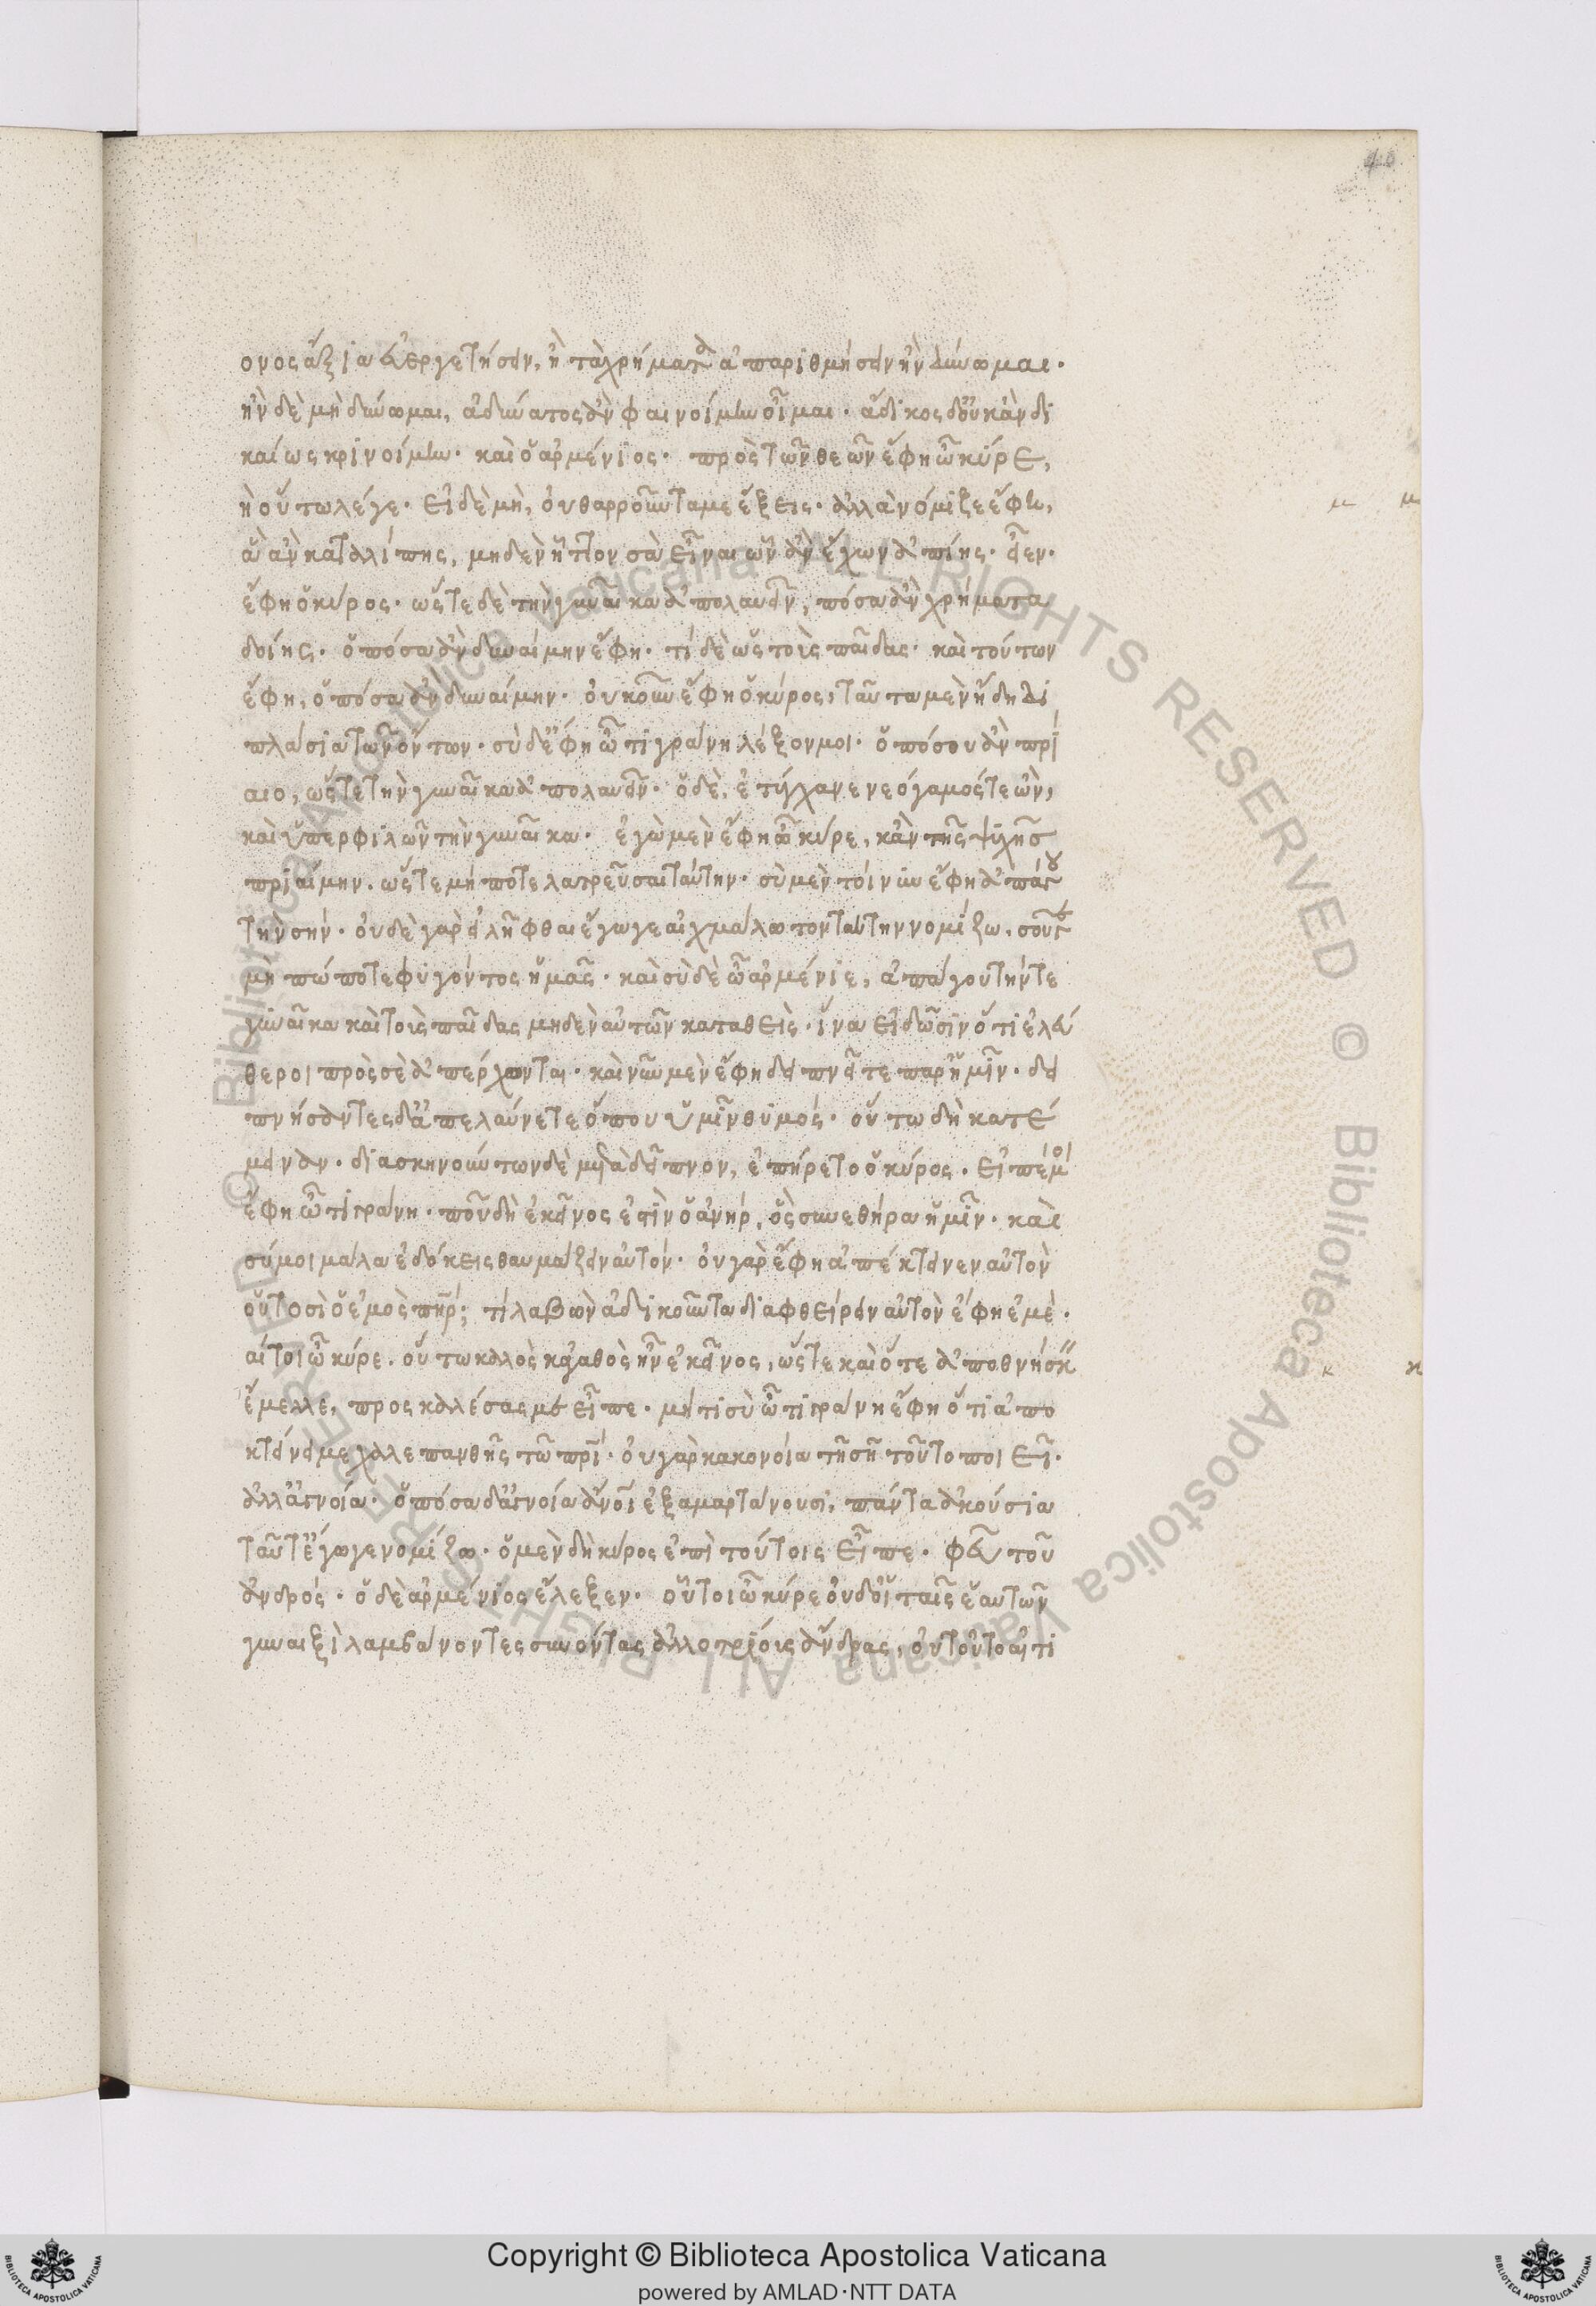 40
ονος ἄξια εὐεργετήσειν, ἢ τὰ χρήματα ἀπαριθμήσειν ἢν δύνωμαι·
ἢν δὲ μὴ δύνωμαι, ἀδύνατος ἂν φαινοίμην οἶμαι· ἄδικος δ' οὐκ ἂν δι
καίως κρινοίμην· καὶ ὁ ἀρμένιος· πρὸς τῶν θεῶν ἔφη ὦ κύρε,
μὴ οὕτω λέγε· εἰ δὲ μὴ, οὐ θαρροῦντα με ἕξεις· ἀλλὰ νόμιζε ἔφην,
ἃ ἂν καταλίπης, μηδὲν ἧττον σὰ εἶναι ὧν ἂν ἔχων ἀπίης· εἶεν·
ἔφη ὁ κύρος· ὥστε δὲ τὴν γυναῖκα ἀπολαβεῖν, πόσα ἂν χρήματα
δοίης· ὁπόσα ἂν δυναίμην ἔφη· τί δὲ ὥστε τοὺς παῖδας· καὶ τούτων
ἔφη, ὁπόσα ἂν δυναίμην· οὐκοῦν ἔφη ὁ κύρος, ταῦτα μὲν ἤδη δι
πλάσια τῶν ὄντων· σὺ δ' ἔφη ὦ τιγράνη λέξον μοι· ὁπόσου ἂν πρί
αιο, ὥστε τὴν γυναῖκα ἀπολαβεῖν· ὁ δὲ, ἐτύγχανε νεόγαμός τε ὢν,
καὶ ὑπερφιλῶν τὴν γυναῖκα· ἐγὼ μὲν ἔφη ὦ κύρε, κἂν τῆς ψυχῆς
πριαίμην. ὥστε μή ποτε λατρεῦσαι ταύτην· σὺ μὲν τοίνυν ἔφη ἀπάγου
τὴν σήν· οὐδὲ γὰρ εἰλῆφθαι ἔγωγε αἰχμάλωτον ταύτην νομίζω, σοῦ γε
μὴ πώποτε φυγόντος ἡμᾶς· καὶ σὺ δὲ ὦ ἀρμένιε, ἀπάγου τήν τε
γυναῖκα καὶ τοὺς παῖδας μηδὲν αὐτῶν καταθεὶς· ἵνα εἰδῶσιν ὅτι ἐλεύ
θεροι πρὸς σὲ ἀπέρχονται· καὶ νῦν μὲν ἔφη δειπνεῖτε παρ' ἡμῖν· δει
πνήσαντες δ' ἀπελαύνετε ὅπου ὑμῖν θυμός· οὕτω δὴ κατέ
μειναν· διασκηνούντων δὲ μετὰ δεῖπνον, ἐπήρετο ὁ κύρος· εἰπέ μοι
ἔφη ὦ τιγράνη· ποῦ δὴ ἐκεῖνος ἐστὶν ὁ ἀνήρ, ὃς συνεθήρα ἡμῖν· καὶ
σύ μοι μάλα ἐδόκεις θαυμάζειν αὐτόν· οὐ γὰρ ἔφη ἀπέκτεινεν αὐτὸν
οὑτοσὶ ὁ ἐμὸς πηρ; τί λαβὼν ἀδικοῦντα διαφθείρειν αὐτὸν ἔφη ἐμέ·
αίτοι ὦ κύρε· οὕτω καλὸς κἀγαθὸς ἦν ἐκεῖνος, ὥστε καὶ ὅτε ἀποθνήσκειν
ἔμελλε, προσκαλέσας με εἶπε· μήτι σὺ ὦ τιγράνη ἔφη ὅτι ἀπο
κτείνει με χαλεπανθῇς τῶ πρί· οὐ γὰρ κακονοία τῇ σῇ τοῦτο ποιεῖ·
ἀλλ' ἀγνοία· ὁπόσα δ' ἀγνοία ἄνοι ἐξαμαρτάνουσι, πάντα ἀκούσια
ταῦτ' ἔγωγε νομίζω· ὁ μὲν δὴ κύρος ἐπὶ τούτοις εἶπε· φεῦ τοῦ
ἀνδρός· ὁ δὲ ἀρμένιος ἔλεξεν· οὗτοι ὦ κύρε οὐδ' οἱ ταῖς ἑαυτῶν
γυναιξὶ λαμβάνοντες συνόντας ἀλλοτρίοις ἄνδρας, οὐ τοῦτο αἰτι
μ μ
κ κ